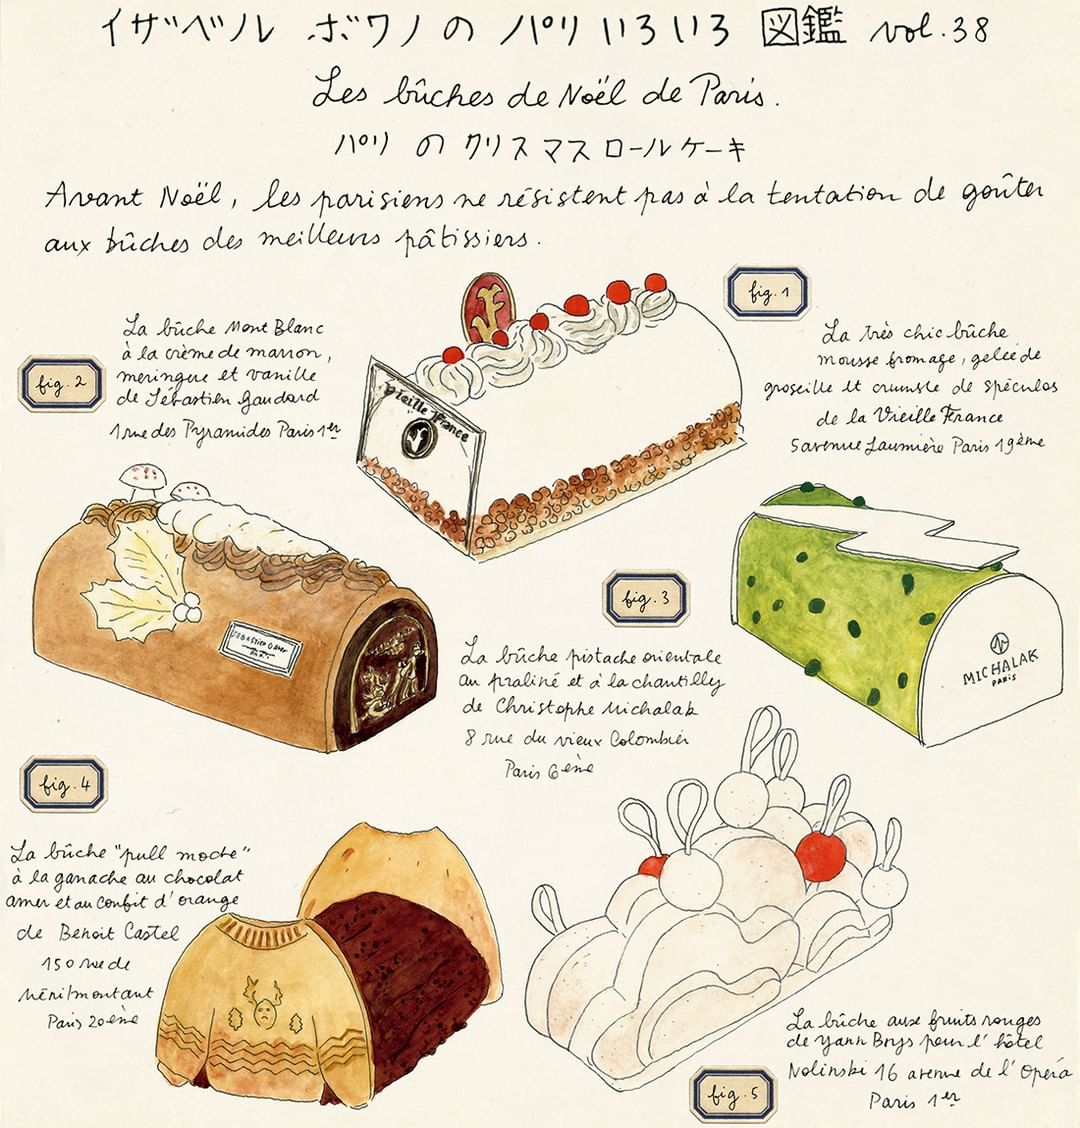 イザベル ボワノの パリいろいろ 図鑑 vol.38
Les bûches de Noël de Paris.
パリ の クリスマスロールケーキ
Avant Noël, les parisiens ne résistent pas à la tentation de goûter
aux bûches des meilleurs pâtissiers.
fig. 1
La très chic bûche
mousse fromage, gelée de
groseille et crumble de spéculos
de la Vieille France
5 avenue Laumière Paris 19ème
Vieille France
fig. 2
La bûche Mont Blanc
à la crème de marron,
meringue et vanille
de Sébastien Gaudard
1 rue des Pyramides Paris 1er
fig. 3
La bûche pistache orientale
au praliné et à la chantilly
de Christophe Michalak
8 rue du vieux Colombier
Paris 6ème
MICHALAK
PARIS
fig. 4
La bûche "pull moche"
à la ganache au chocolat
amer et au confit d'orange
de Benoit Castel
150 rue de
Ménilmontant
Paris 20ème
fig. 5
La bûche aux fruits rouges
de Yann Brys pour l'hôtel
Nolinski 16 avenue de l'Opéra
Paris 1er